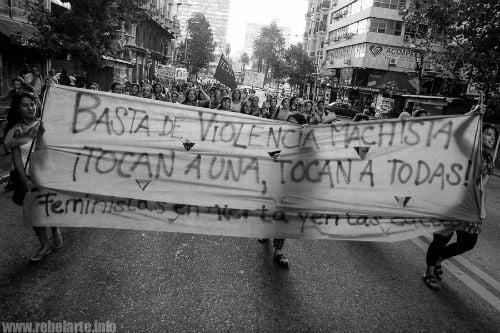 BASTA DE VIOLENCIA MACHISTA
¡TOCAN A UNA, TOCAN A TODAS!!
feministas en alerta y en las calles
www.rebelarte.info